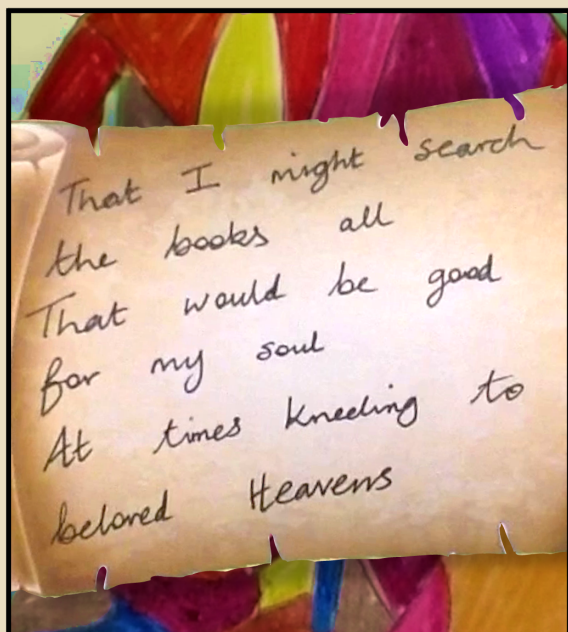 That I might search
the books all
That would be good
for my soul
At times kneeling to
beloved Heavens